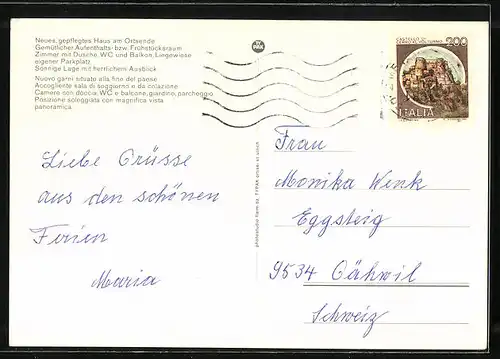 Neues, gepflegtes Haus am Ortsende
Gemütlicher Aufenthalts- bzw. Frühstücksraum
Zimmer mit Dusche, WC und Balkon, Liegewiese
eigener Parkplatz
Sonnige Lage mit herrlichem Ausblick
Nuovo garni situato alla fine del paese
Accogliente sala di soggiorno e da colazione
Camere con doccia, WC e balcone, giardino, parcheggio
Posizione soleggiata con magnifica vista
panoramica
PAK
200
ITALIA
Liebe Grüsse
aus den schönen
Ferien
Maria
Frau
Monika Wenk
Eggsteig
9534 Gähwil
Schweiz